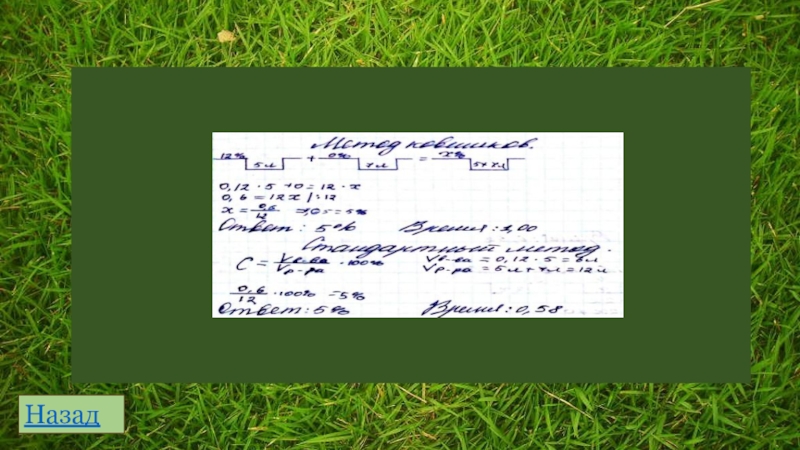 Метод ковшиков.
12% 5 л + 0% 7 л = x% 5+7л
0,12 · 5 + 0 = 12 · x
0,6 = 12x | :12
x = 0,6/12 = 0,05 = 5%
Ответ: 5% Время: 1,00
Стандартный метод.
C = Vв-ва/Vр-ра · 100% Vв-ва = 0,12 · 5 = 6л
Vр-ра = 5л + 7л = 12л
0,6/12 · 100% = 5%
Ответ: 5% Время: 0,58
Назад